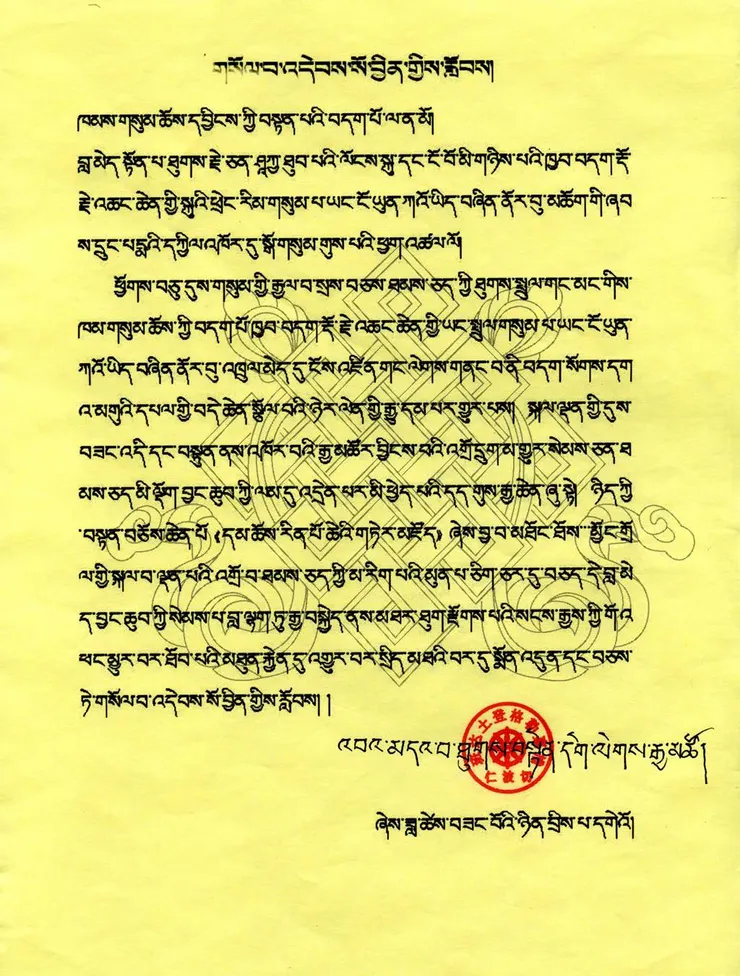 གསོལ་བ་འདེབས་སོ་བྱིན་གྱིས་རློབས།
ཁམས་གསུམ་ཆོས་ད་བྱིངས་ཀྱི་བསྟན་པའི་བདག་པོ་ལ་ན་མོ།
བླ་མེད་སྟོན་པ་ཐུགས་རྗེ་ཅན་ཤཱཀྱ་ཐུབ་པའི་ལོངས་སྐུ་དང་ངོ་བོ་མི་གཉིས་པའི་ཁྱབ་བདག་རྡོ་
རྗེ་འཆང་ཆེན་གྱི་སྐུའི་ཕྲེང་རིམ་གསུམ་པ་ཡང་ངོ་ཡུན་ཀའོ་ཡིད་བཞིན་ནོར་བུ་མཆོག་གི་ཞབ
ས་དྲུང་པདྨའི་དཀྱིལ་འཁོར་དུ་སྒོ་གསུམ་གུས་པའི་ཕྱག་འཚལ་ལོ།
ཕྱོགས་བཅུ་དུས་གསུམ་གྱི་རྒྱལ་བ་སྲས་བཅས་ཐམས་ཅད་ཀྱི་ཐུགས་སྤྲུལ་གང་མང་གིས་
ཁམ་གསུམ་ཆོས་ཀྱི་བདག་པོ་ཁྱབ་བདག་རྡོ་རྗེ་འཆང་ཆེན་གྱི་ཡང་སྤྲུལ་གསུམ་པ་ཡང་ངོ་ཡུན་
ཀའོ་ཡིད་བཞིན་ནོར་བུ་འཁྲུལ་མེད་དུ་ངོས་འཛིན་གང་ལེགས་གནང་བ་ནི་བདག་སོགས་དག
འ་མགུའི་དཔལ་གྱི་བདེ་ཆེན་སྩོལ་བའི་ཉེར་ལེན་གྱི་རྒྱུ་དམ་པར་གྱུར་པས། སྐལ་ལྡན་གྱི་དུས་
བཟང་འདི་དང་བསྟུན་ནས་འཁོར་བའི་རྒྱ་མཚོར་བྱིངས་པའི་འགྲོ་དྲུག་མ་གྱུར་སེམས་ཅན་ཐ
མས་ཅད་མི་ལྡོག་བྱང་ཆུབ་ཀྱི་ལམ་དུ་འདྲེན་པར་མི་ཕྱེད་པའི་དད་གུས་རྒྱ་ཆེན་ཞུ་སྟེ། ཉིད་ཀྱི་
བསྟན་བཅོས་ཆེན་པོ《དམ་ཆོས་རིན་པོ་ཆེའི་གཏེར་མཛོད》ཞེས་བྱ་བ་མཐོང་ཐོས་མྱོང་གྲོ
ལ་གྱི་སྐལ་བ་ལྡན་པའི་འགྲོ་བ་ཐམས་ཅད་ཀྱི་མ་རིག་པའི་མུན་པ་ཅིག་ཅར་དུ་བཅད་དེ་བླ་མེ
ད་བྱང་ཆུབ་ཀྱི་སེམས་པ་བླ་ལྷག་ཏུ་རྒྱ་བསྐྱེད་ནས་མཐར་ཐུག་རྫོགས་པའི་སངས་རྒྱས་ཀྱི་གོ་འ
ཕང་མྱུར་བར་ཐོབ་པའི་མཐུན་རྐྱེན་དུ་འགྱུར་བར་སྲིད་མཐའི་བར་དུ་སྨོན་འདུན་དང་བཅས་
ཏེ་གསོལ་བ་འདེབས་སོ་བྱིན་གྱིས་རློབས།།
འབའ་མདའ་བ་ཐུགས་བསྟན་དགེ་ལེགས་རྒྱ་མཚོ།
土登格
仁波切
ཞེས་ཟླ་ཚེས་བཟང་པོའི་ཉིན་བྲིས་པ་དགེའོ།